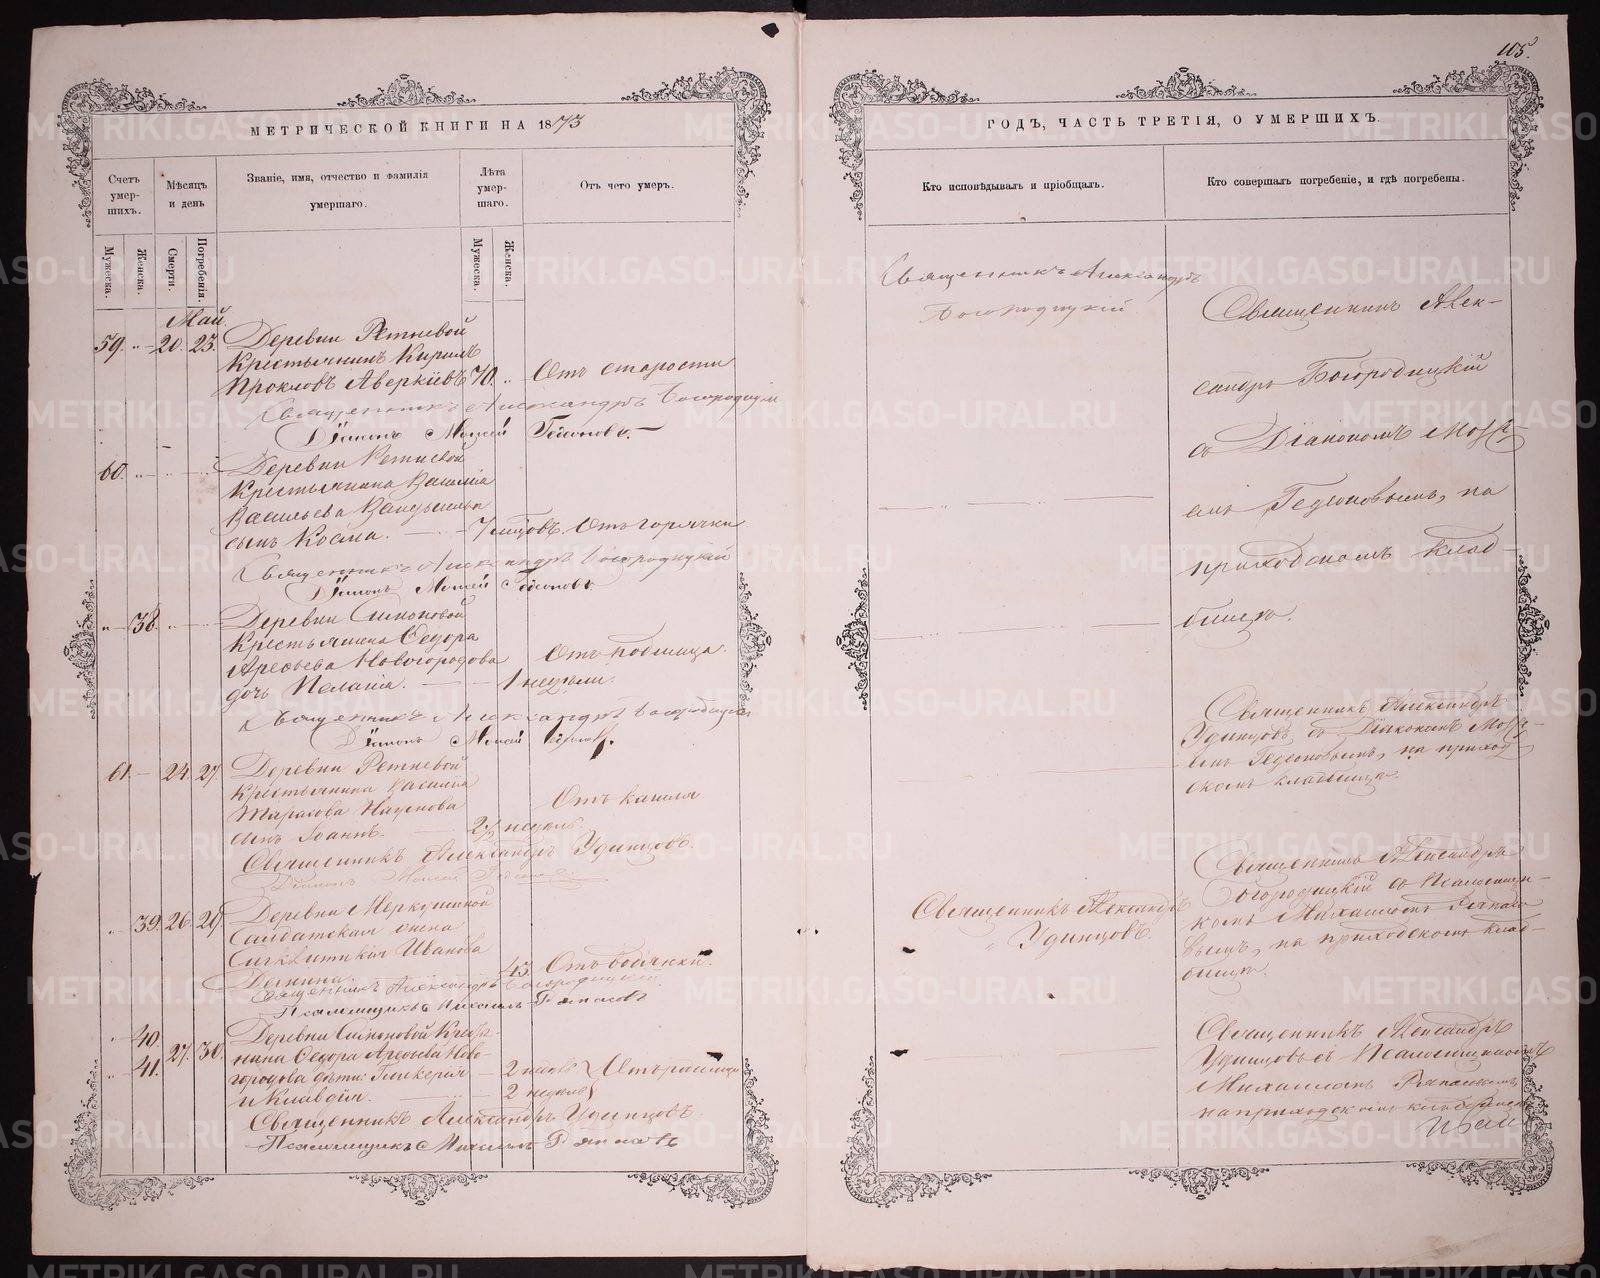 105.
МЕТРИЧЕСКОЙ КНИГИ НА 1873
ГОДЪ, ЧАСТЬ ТРЕТІЯ, О УМЕРШИХЪ.
Счетъ умер-
шихъ.
Мѣсяцъ
и день
Званіе, имя, отчество и фамилія
умершаго.
Лѣта
умер-
шаго.
Отъ чего умеръ.
Кто исповѣдывалъ и пріобщалъ.
Кто совершалъ погребеніе, и гдѣ погребены.
Мужеска.
Женска.
Смерти.
Погребенія.
Мужеска.
Женска.
Май.
59. „ 20. 23. Деревни Ретневой
Крестьянинъ Кирилъ
Прокловъ Аверкіевъ 70. „ Отъ старости
Священникъ Александръ Богородицкій
Діаконъ Моисей Гедеоновъ.
60. „ Деревни Ретневой
Крестьянина Василія
Васильева
сынъ Косма. 7 мѣсцовъ. Отъ горячки
Священникъ Александръ Богородицкій
Діаконъ Моисей Гедеоновъ.
„ 38. Деревни Симоновой
Крестьянина Ѳедора
Арефьева Новогородова Отъ родимца.
дочь Пелагія. 1 недѣли.
Священникъ Александръ Богородицкій
Діаконъ Моисей Гедеоновъ.
61. 24. 27. Деревни Ретневой
Крестьянина Василія
Тарасова Наумова Отъ кашля
сынъ Іоаннъ. 2½ недѣль.
Священникъ Александръ Удинцовъ.
Діаконъ Моисей Гедеоновъ.
„ 39. 26. 29. Деревни Меркушиной
Салдатская жена
Синклитикія Иванова
Демина. 45. Отъ водянки.
Священникъ Александръ Богородицкій
Псаломщикъ Михаилъ Ряпасовъ
„ 40. Деревни Симоновой Кресть-
27. 30. нина Ѳедора Арефьева Ново-
„ 41. городова дѣти: Гликерія 2 недѣль Отъ родимца
и Клавдія. 2 недѣль
Священникъ Александръ Удинцовъ.
Псаломщикъ Михаилъ Ряпасовъ
Священникъ Александръ
Богородицкій
Священникъ Алек-
сандръ Богородицкій
съ Діакономъ Моѵсе-
емъ Гедеоновымъ, на
приходскомъ клад-
бищѣ.
Священникъ Александръ
Удинцовъ съ Діакономъ Моѵсе-
емъ Гедеоновымъ, на приход-
скомъ кладбищѣ.
Священникъ Александръ
Удинцовъ.
Священникъ Александръ
Богородицкій съ Псаломщи-
комъ Михаиломъ Ряпасо-
вымъ, на приходскомъ клад-
бищѣ.
Священникъ Александръ
Удинцовъ съ Псаломщикомъ
Михаиломъ Ряпасовымъ,
на приходскомъ кладбищѣ
METRIKI.GASO-URAL.RU